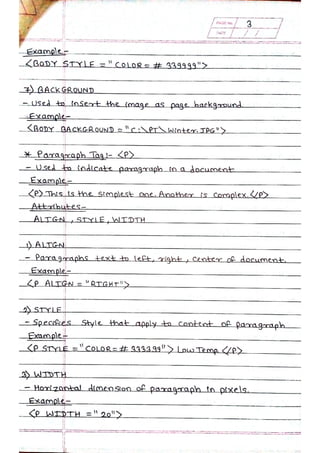 PAGE NO. 3
DATE / /
Example:-
<BODY STYLE = "COLOR = # 999999">
7) BACKGROUND
- Used to insert the image as page background.
Example:-
<BODY BACKGROUND = "C:\PT\Winter.JPG">
* Paragraph Tag:- <P>
- Used to indicate paragraph in a document
Example:-
<P> This is the simplest one. Another is complex. </P>
Attributes:-
ALIGN, STYLE, WIDTH
1) ALIGN
- Paragraphs text to left, right, center of document.
Example:-
<P ALIGN = "RIGHT">
2) STYLE
- Specifies style that apply to content of paragraph
Example:-
<P STYLE = "COLOR = # 999999"> Low Temp </P>
3) WIDTH
- Horizontal dimension of paragraph in pixels.
Example:-
<P WIDTH = "20">